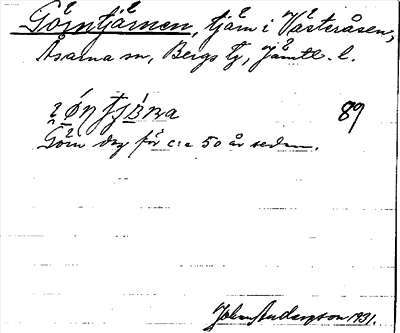 Görntjärnen, tjärn i Västeråsen,
Åsarna sn, Bergs tg, Jämtl. l.
89
Görn dog för c:a 50 år sedan.
John Andersson 1931.